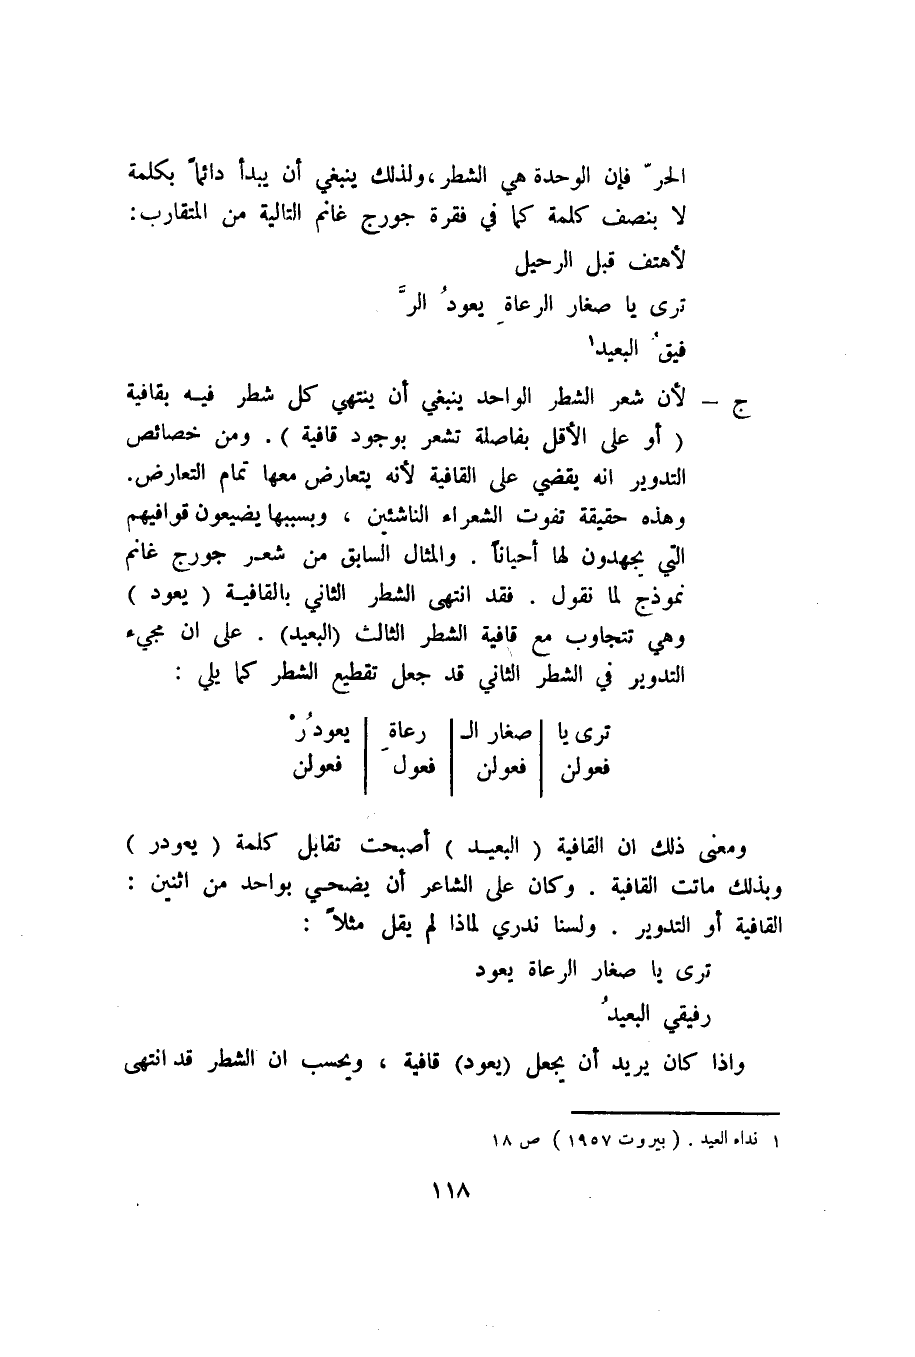 الحرّ فإن الوحدة هي الشطر ،ولذلك ينبغي أن يبدأ دائماً بكلمة
لا بنصف كلمة كما في فقرة جورج غانم التالية من المتقارب:
لأهتف قبل الرحيل
ترى يا صغار الرعاةِ يعودُ الرَّ
فيقُ البعيد١
ج – لأن شعر الشطر الواحد ينبغي أن ينتهي كل شطر فيه بقافية
( أو على الأقل بفاصلة تشعر بوجود قافية ) . ومن خصائص
التدوير انه يقضي على القافية لأنه يتعارض معها تمام التعارض.
وهذه حقيقة تفوت الشعراء الناشئين ، وبسببها يضيعون قوافيهم
التي يجهدون لها أحياناً . والمثال السابق من شعر جورج غانم
نموذج لما نقول . فقد انتهى الشطر الثاني بالقافية ( يعود )
وهي تتجاوب مع قافية الشطر الثالث (البعيد) . على ان مجيء
التدوير في الشطر الثاني قد جعل تقطيع الشطر كما يلي :
ترى يا | صغار الـ | رعاةِ | يعودُرْ
فعولن | فعولن | فعولَ | فعولن
ومعنى ذلك ان القافية ( البعيد ) أصبحت تقابل كلمة ( يعودر )
وبذلك ماتت القافية . وكان على الشاعر أن يضحي بواحد من اثنين :
القافية أو التدوير . ولسنا ندري لماذا لم يقل مثلاً :
ترى يا صغار الرعاة يعود
رفيقي البعيدُ
واذا كان يريد أن يجعل (يعود) قافية ، ويحسب ان الشطر قد انتهى
١ نداء العيد . ( بيروت ١٩٥٧ ) ص ١٨
١١٨